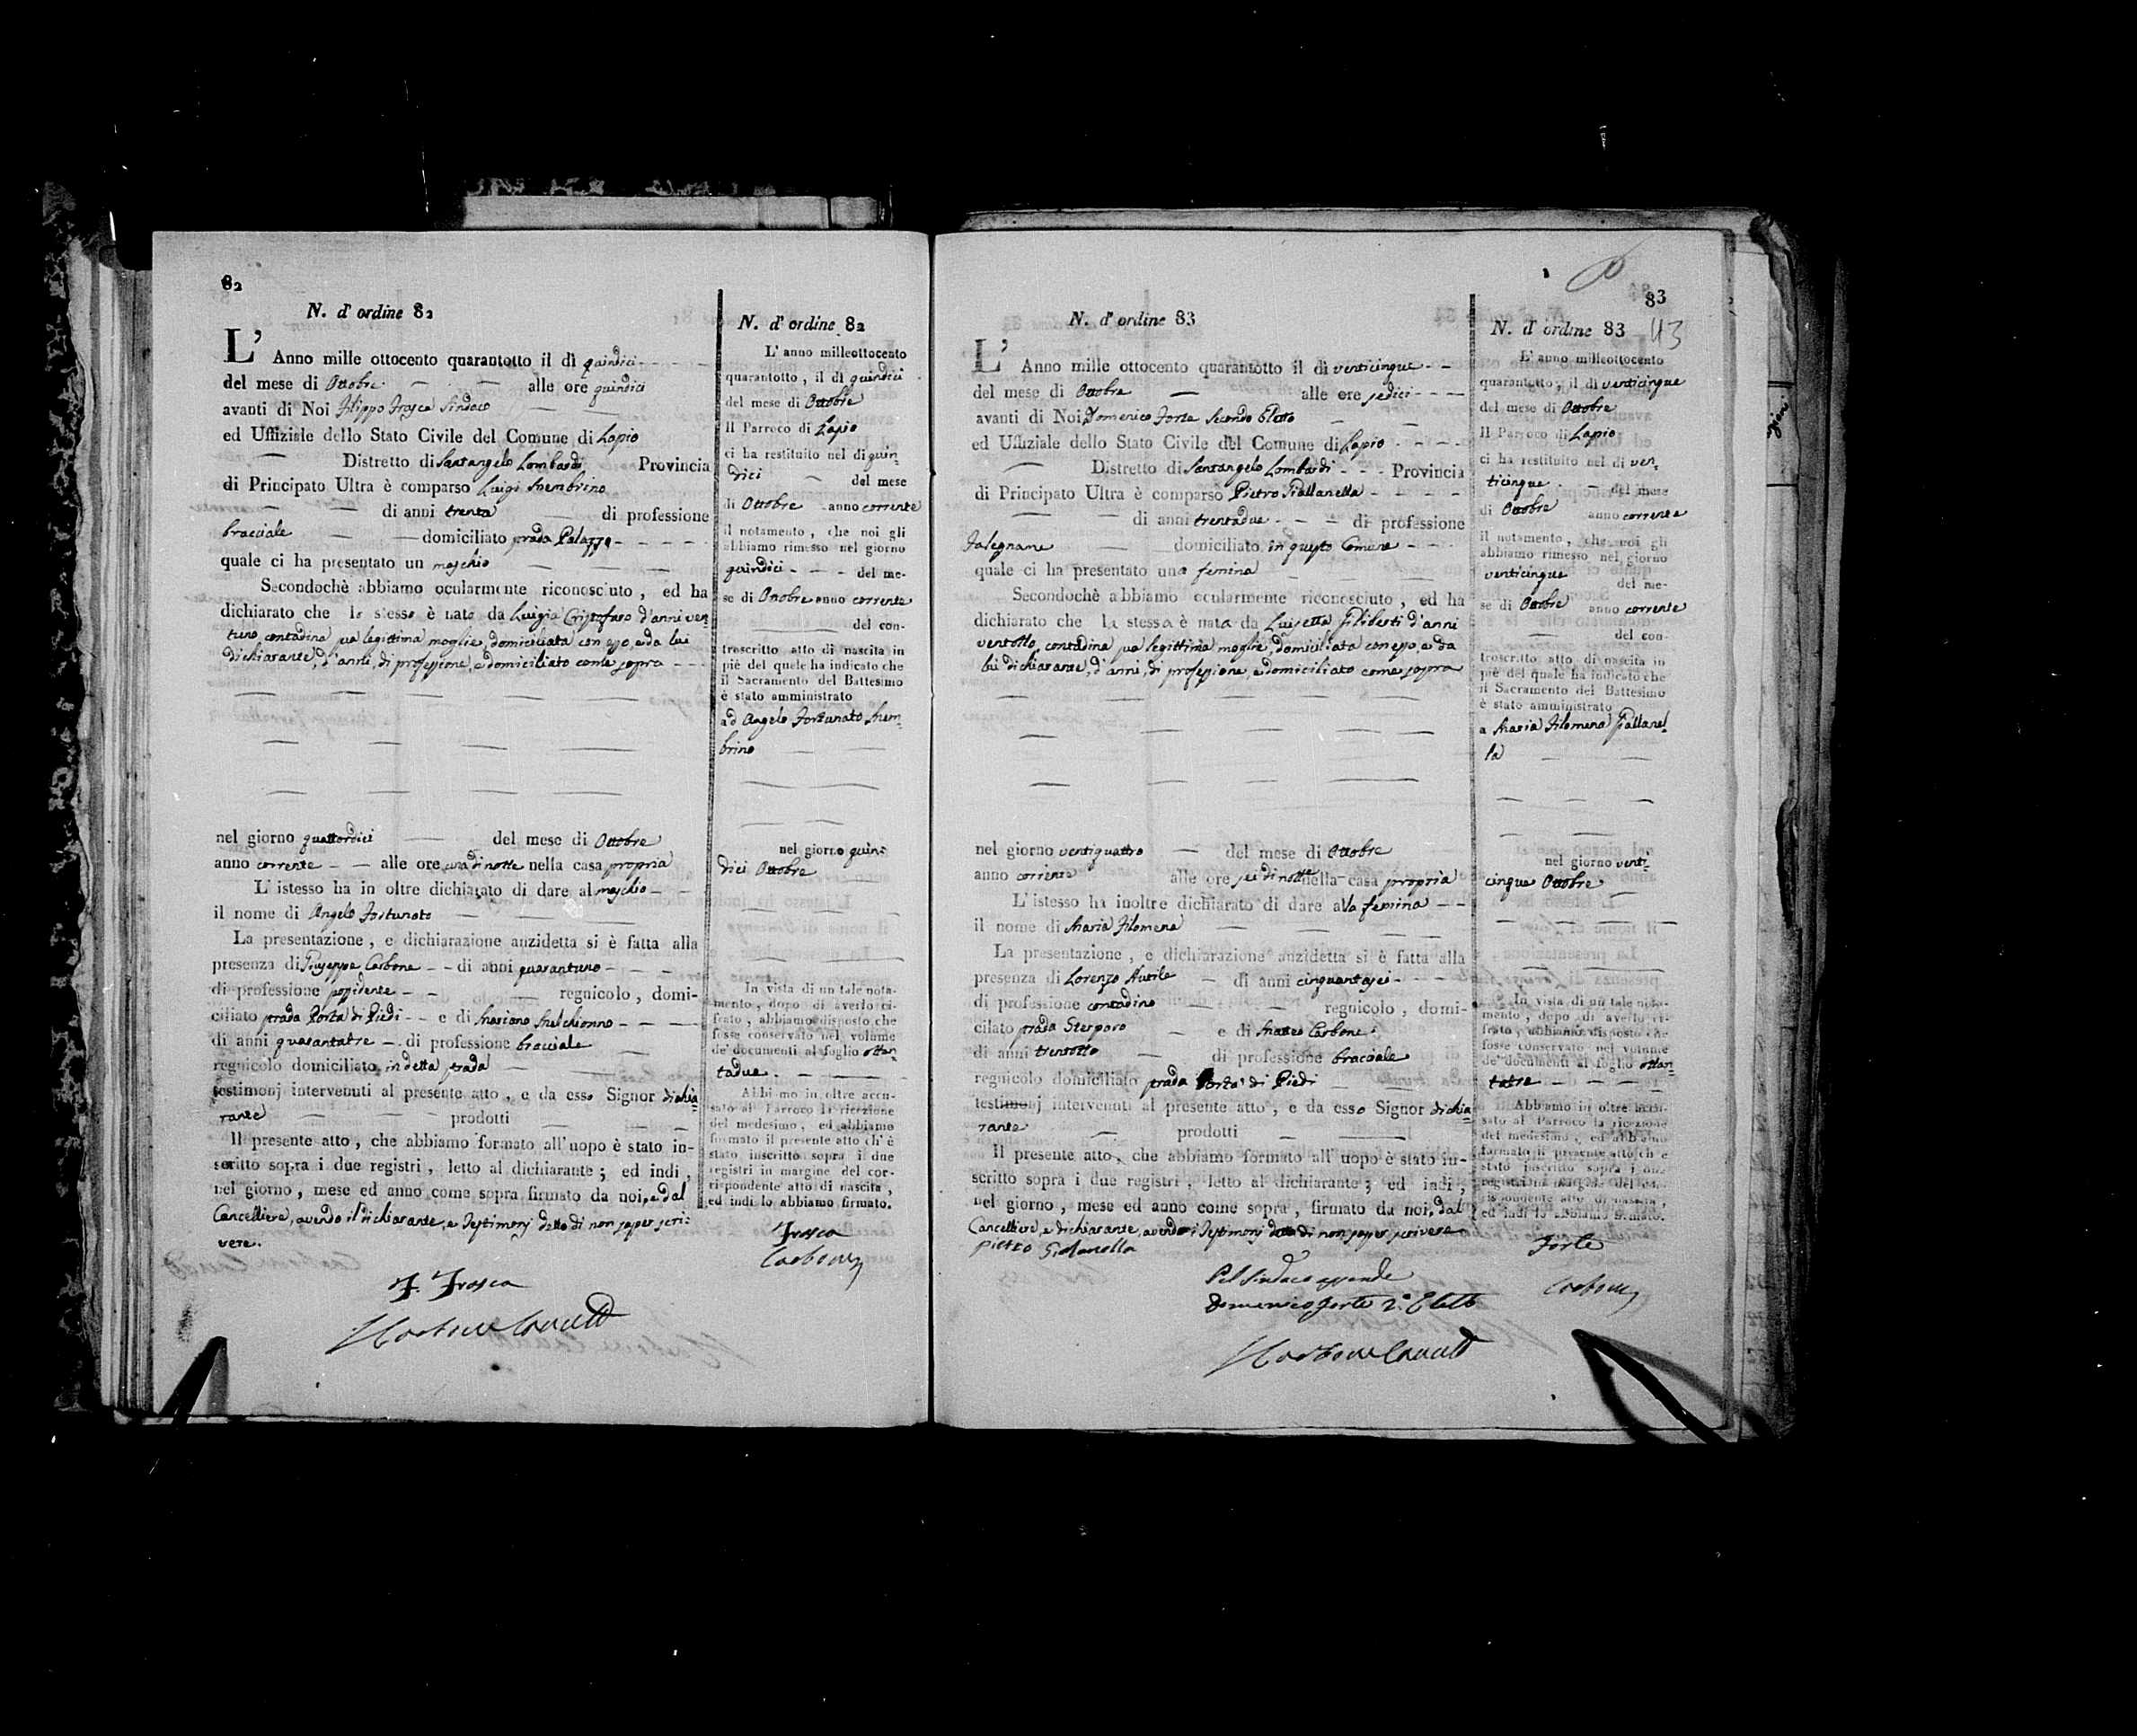 82
N. d' ordine 82
L' Anno mille ottocento quarantotto il dì quindici
del mese di Ottobre alle ore quindici
avanti di Noi Filippo Frasca Sindaco
ed Uffiziale dello Stato Civile del Comune di Lapio
Distretto di Santangelo Lombardi Provincia
di Principato Ultra è comparso Luigi
di anni trenta di professione
bracciale domiciliato strada Palazzo
quale ci ha presentato un maschio
Secondochè abbiamo ocularmente riconosciuto, ed ha
dichiarato che lo stesso è nato da Luigia Cristofaro d'anni ven-
tuno, contadina, sua legittima moglie, domiciliata con esso, e da lui
dichiarante, d'anni, di professione, e domiciliato come sopra
nel giorno quattordici del mese di Ottobre
anno corrente alle ore una di notte nella casa propria
L' istesso ha in oltre dichiarato di dare al maschio
il nome di Angelo Fortunato
La presentazione, e dichiarazione anzidetta si è fatta alla
presenza di Giuseppe Carbone di anni quarantuno
di professione possidente regnicolo, domi-
ciliato strada Porta di Piedi e di Mariano Melchionno
di anni quarantatre di professione bracciale
regnicolo domiciliato in detta strada
testimonj intervenuti al presente atto, e da esso Signor dichia-
rante prodotti
Il presente atto, che abbiamo formato all' uopo è stato in-
scritto sopra i due registri, letto al dichiarante; ed indi,
nel giorno, mese ed anno come sopra firmato da noi, e dal
Cancelliere, avendo il dichiarante, e Testimonj detto di non saper scri-
vere.
F. Frasca
N. d' ordine 82
L' anno milleottocento
quarantotto, il dì quindici
del mese di Ottobre
Il Parroco di Lapio
ci ha restituito nel dì quin-
dici del mese
di Ottobre anno corrente
il notamento, che noi gli
abbiamo rimesso nel giorno
quindici del me-
se di Ottobre anno corrente
del con-
troscritto atto di nascita in
piè del quele ha indicato che
il Sacramento del Battesimo
è stato amministrato
ad Angelo Fortunato
brino
nel giorno quin-
dici Ottobre
In vista di un tale nota-
mento, dopo di averlo ci-
frato, abbiamo disposto che
fosse conservato nel volume
de' documenti al foglio ottan-
tadue
Abbiamo in oltre accu-
sato al Parroco la ricezione
del medesimo, ed abbiamo
formato il presente atto ch' è
stato inscritto sopra i due
registri in margine del cor-
rispondente atto di nascita,
ed indi lo abbiamo firmato.
Frasca
Carbone
83
43
N. d' ordine 83
L' Anno mille ottocento quarantotto il dì venticinque
del mese di Ottobre alle ore sedici
avanti di Noi Domenico Forte Secondo Eletto
ed Uffiziale dello Stato Civile del Comune di Lapio
Distretto di Santangelo Lombardi Provincia
di Principato Ultra è comparso Pietro Giallanella
di anni trentadue di professione
Falegname domiciliato in questo Comune
quale ci ha presentato una femina
Secondochè abbiamo ocularmente riconosciuto, ed ha
dichiarato che la stessa è nata da Luisetta Filiberti d'anni
ventotto, contadina, sua legittima moglie, domiciliata con esso, e da
lui dichiarante, d'anni, di professione, e domiciliato come sopra
nel giorno ventiquattro del mese di Ottobre
anno corrente alle ore sei di notte nella casa propria
L' istesso ha inoltre dichiarato di dare alla femina
il nome di Maria Filomena
La presentazione, e dichiarazione anzidetta si è fatta alla
presenza di Lorenzo di anni cinquantasei
di professione contadino regnicolo, domi-
cilato strada Sterparo e di Matteo Carbone
di anni trentotto di professione bracciale
regnicolo domiciliato strada Porta di Piedi
testimonj intervenuti al presente atto, e da esso Signor dichia-
rante prodotti
Il presente atto, che abbiamo formato all' uopo è stato in-
scritto sopra i due registri, letto al dichiarante; ed indi,
nel giorno, mese ed anno come sopra, firmato da noi, dal
Cancelliere, e dichiarante, avendo i Testimonj detto di non saper scrivere
Pietro Gialanella
Pel Sindaco assente
Domenico Forte 2° Eletto
N. d' ordine 83
L' anno milleottocento
quarantotto, il dì venticinque
del mese di Ottobre
Il Parroco di Lapio
ci ha restituito nel dì ven-
ticinque del mese
di Ottobre anno corrente
il notamento, che noi gli
abbiamo rimesso nel giorno
venticinque del me-
se di Ottobre anno corrente
del con-
troscritto atto di nascita in
piè del quele ha indicato che
il Sacramento del Battesimo
è stato amministrato
a Maria Filomena Giallanel-
la
nel giorno venti-
cinque Ottobre
In vista di un tale nota-
mento, dopo di averlo ci-
frato, abbiamo disposto che
fosse conservato nel volume
de' documenti al foglio ottan-
tatre
Abbiamo in oltre accu-
sato al Parroco la ricezione
del medesimo, ed abbiamo
formato il presente atto ch' è
stato inscritto sopra i due
registri in margine del cor-
rispondente atto di nascita,
ed indi lo abbiamo firmato.
Forte
Carbone